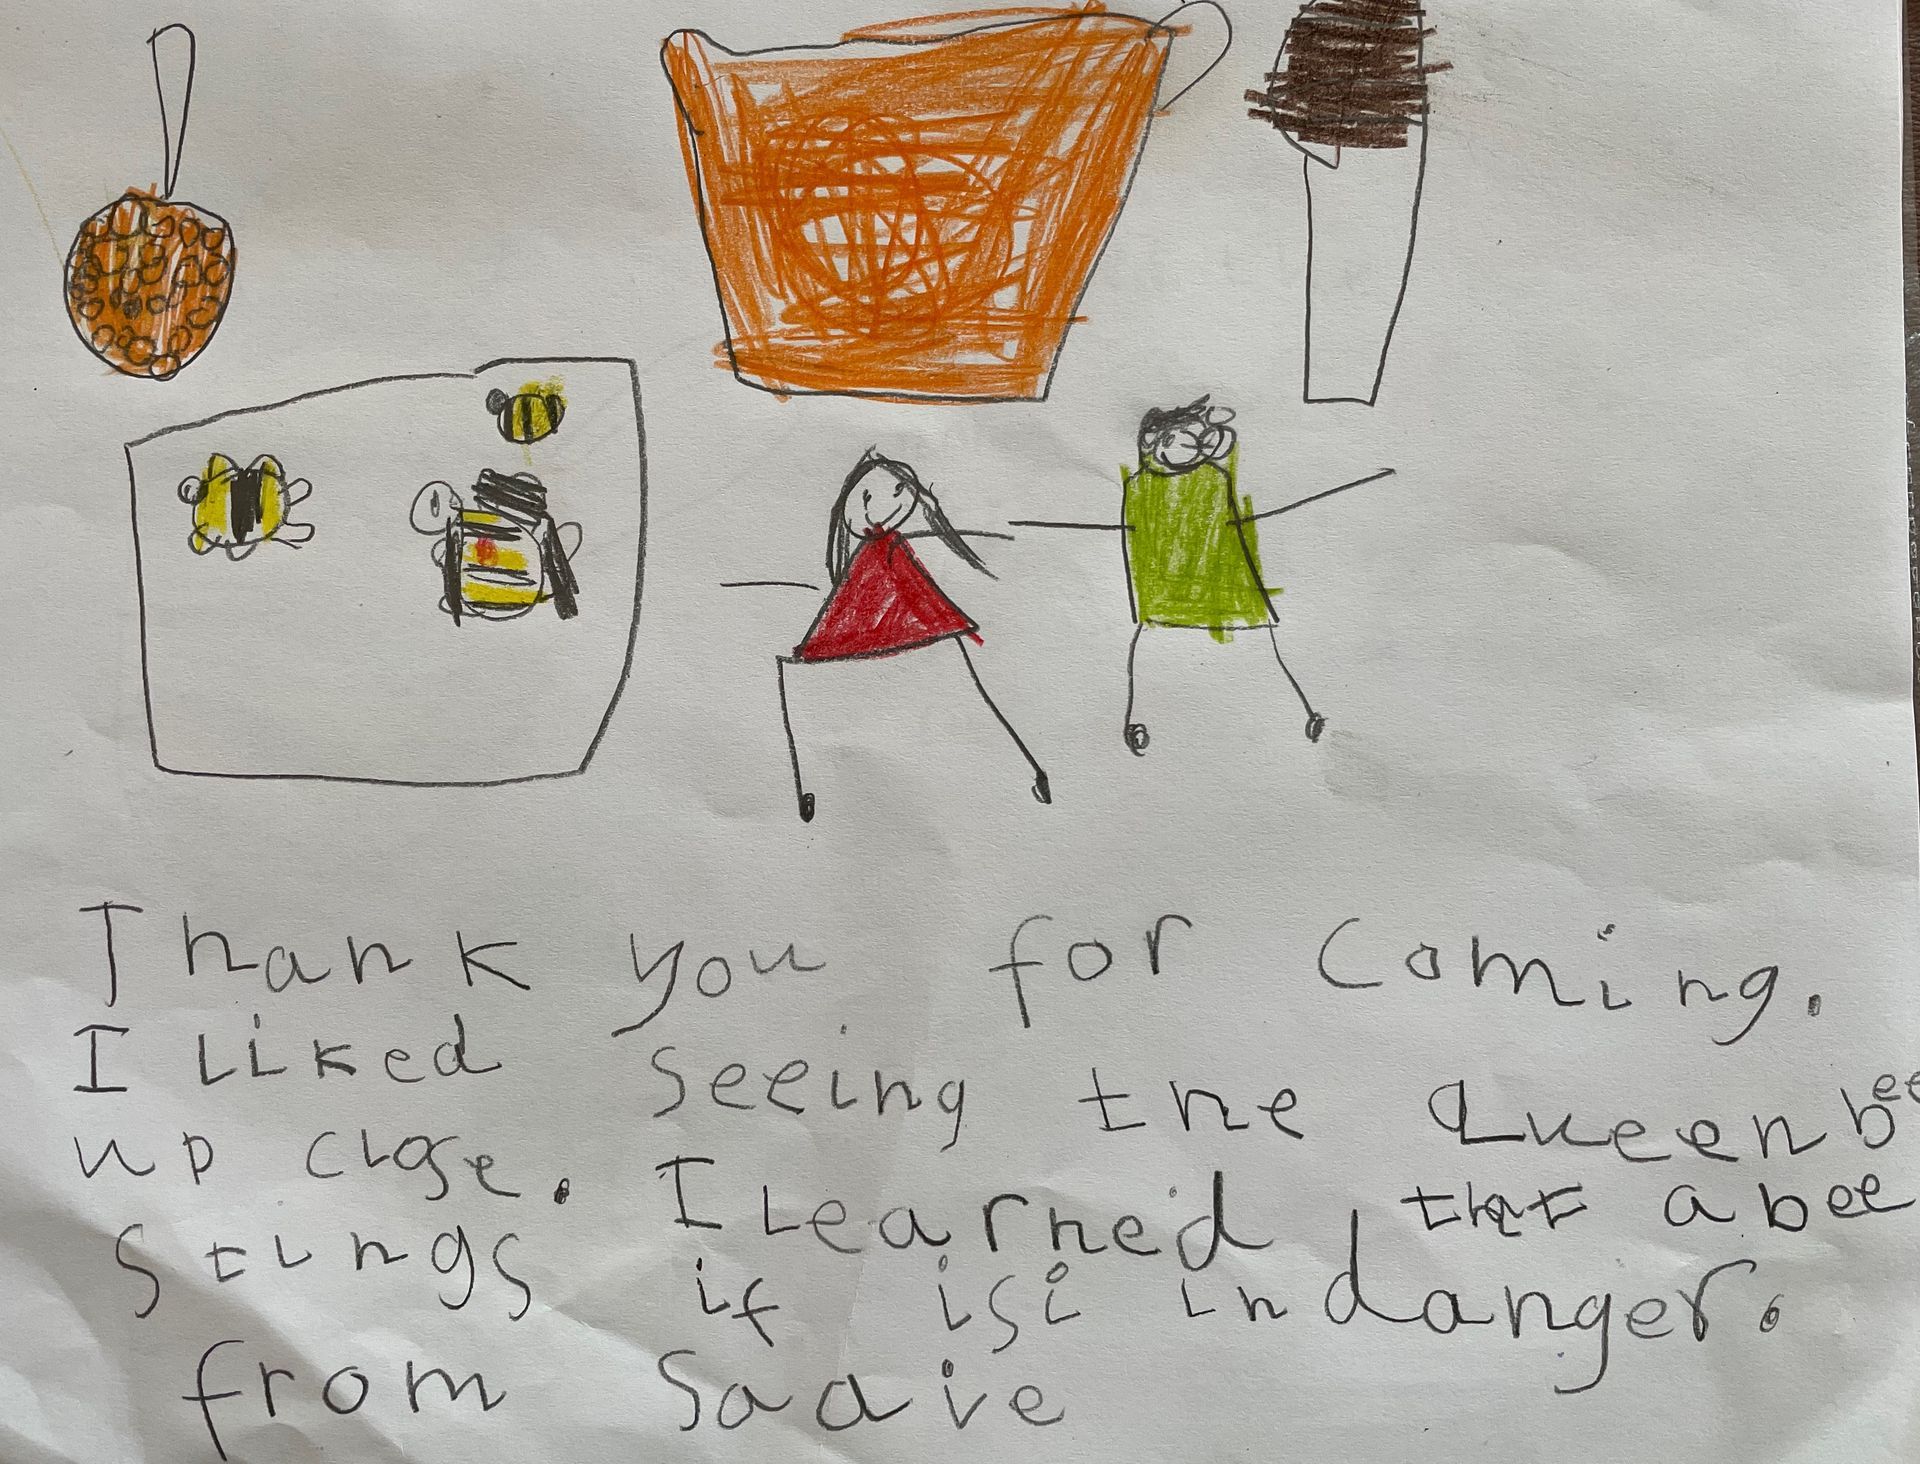 Thank you for coming.
I liked seeing the Queen bee
up close. I learned that a bee
stings if isi in danger.
from Sadie